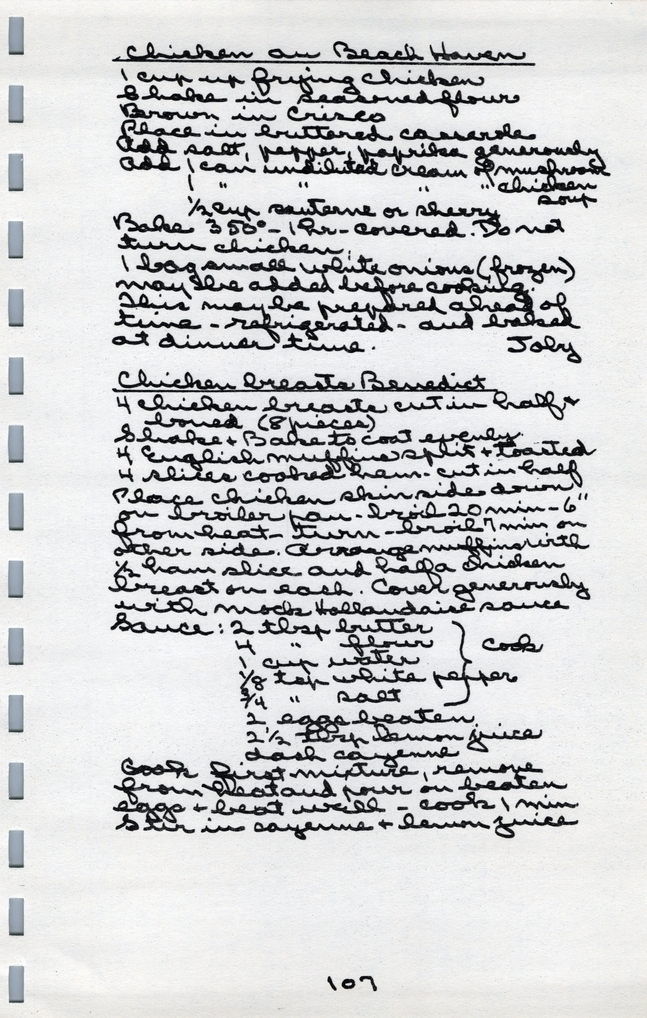 Chicken au Beach Haven
1 cup up frying chicken
Shake in seasoned flour
Brown in Crisco
Place in buttered casserole
Add salt, pepper, paprika generously
Add 1 can undiluted cream of mushroom
1 " " " " chicken soup
1/2 cup sauterne or sherry
Bake 350° - 1 hr - covered. Do not
turn chicken.
1 bag small white onions (frozen)
may be added before cooking.
This may be prepared ahead of
time - refrigerated - and baked
at dinner time. Joby
Chicken breasts Benedict
4 chicken breasts cut in half +
boned (8 pieces)
Shake + Bake to coat evenly
4 English muffins split + toasted
4 slices cooked ham - cut in half
Place chicken skin side down
on broiler pan - broil 20 min - 6"
from heat - turn - broil 7 min on
other side. Arrange muffins with
1/2 ham slice and half a chicken
breast on each. Cover generously
with mock Hollandaise sauce
Sauce: 2 tbsp butter
4 " flour
1 cup water } cook
1/8 tsp white pepper
3/4 " salt
2 eggs beaten
2 1/2 tbsp lemon juice
dash cayenne
Cook first mixture, remove
from heat and pour on beaten
eggs + beat well - cook 1 min
Stir in cayenne + lemon juice
107